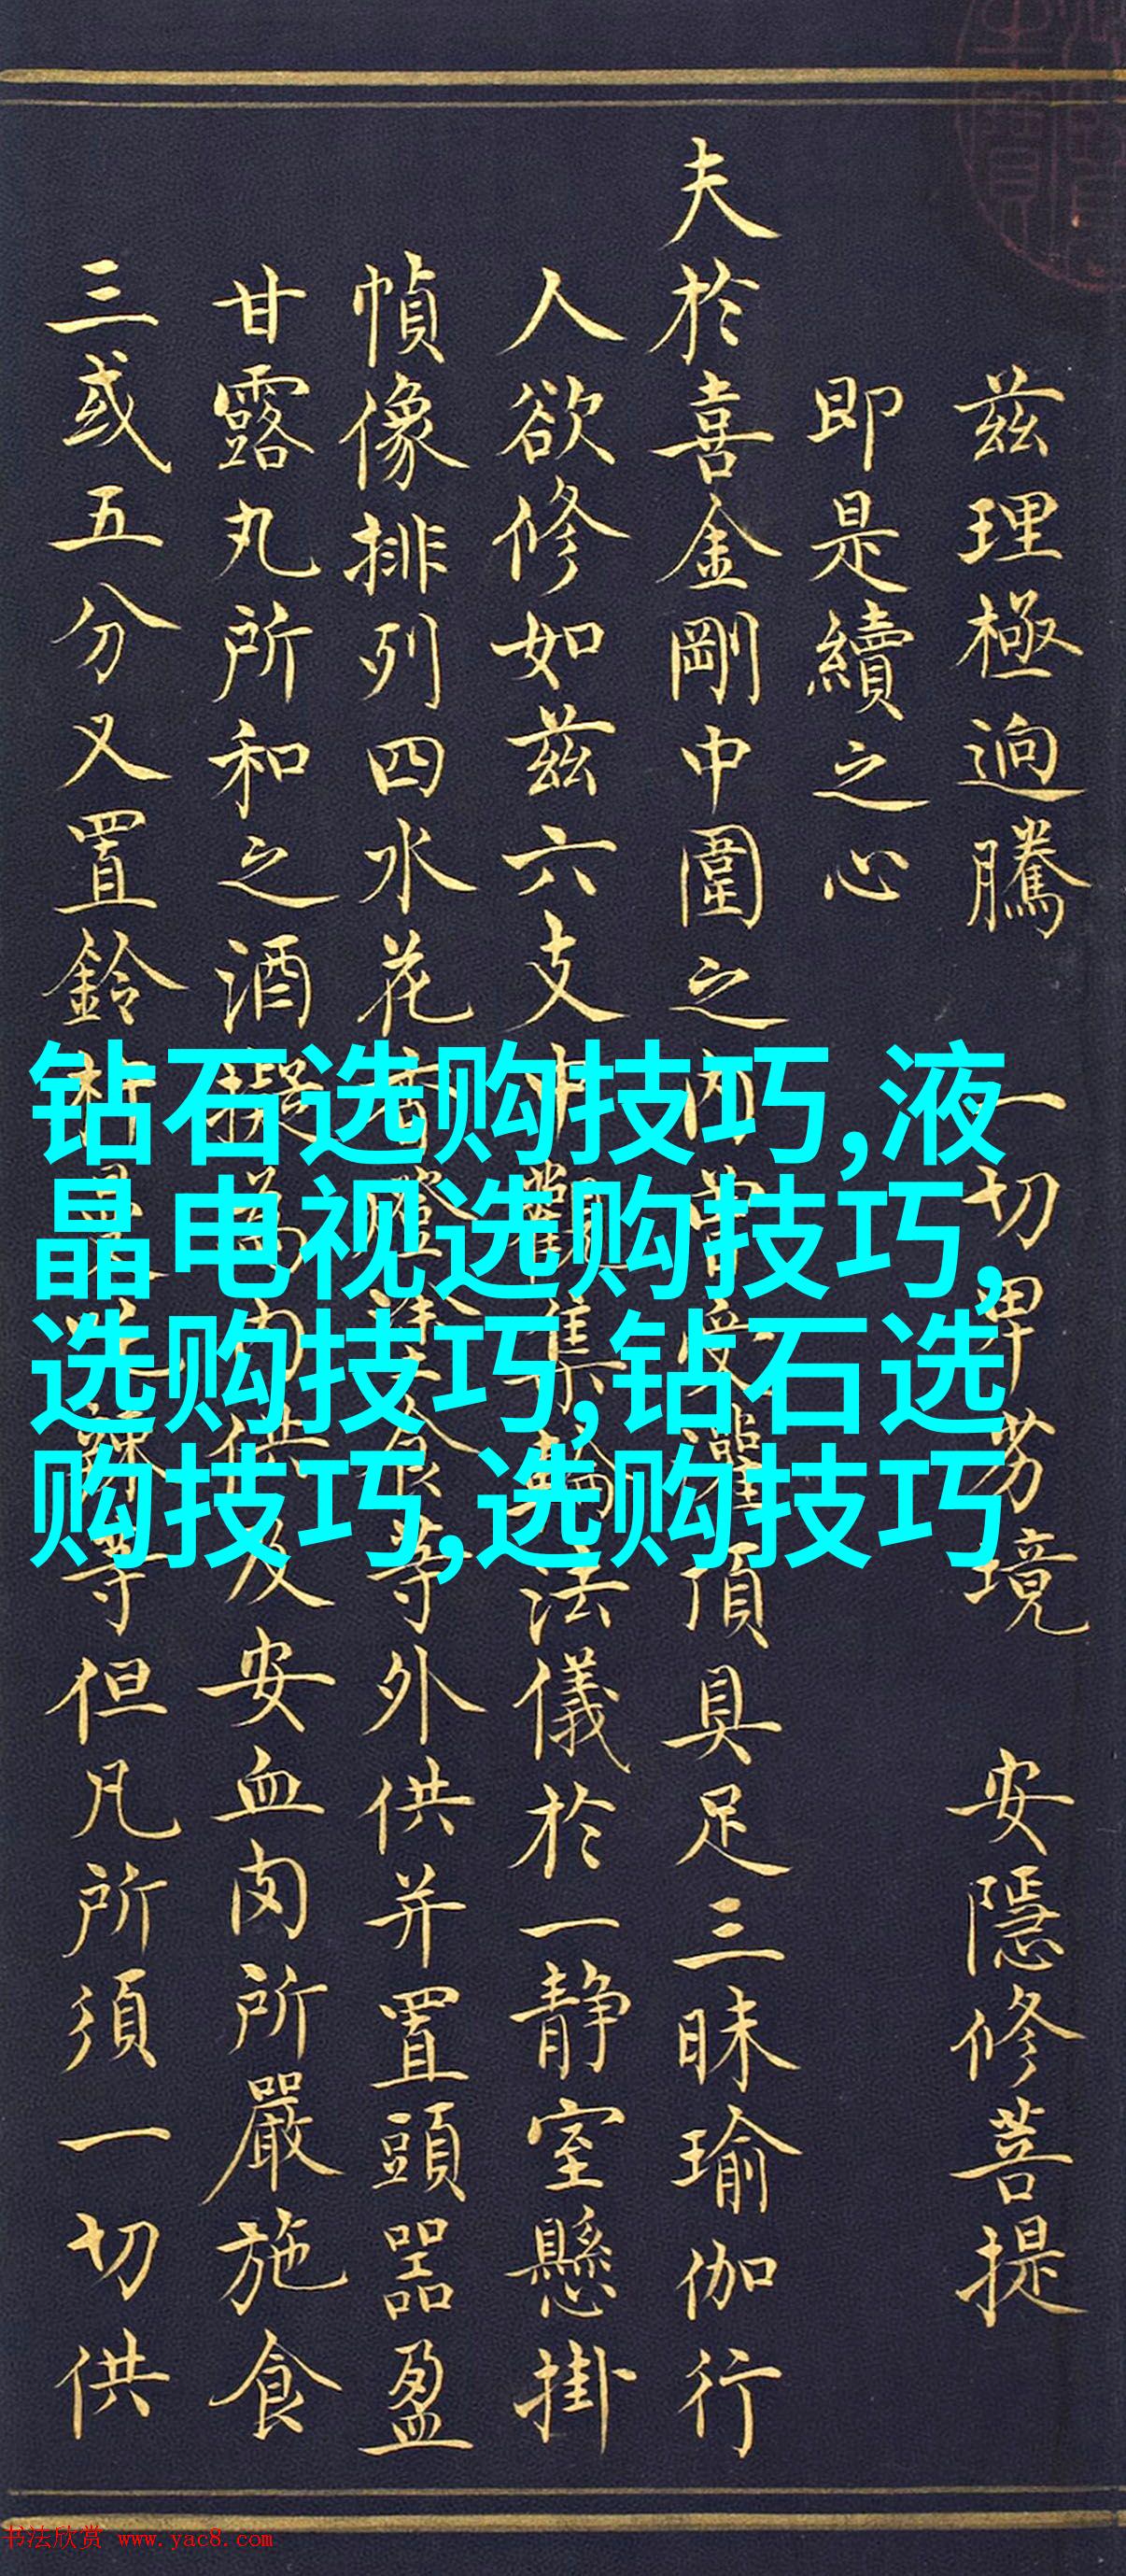 兹理極迥騰 一切卑劣境 安隱修菩提
即是續之心
夫於喜金剛中圍之内曾受灌頂具足三昧瑜伽行
人欲修如兹六支觀集輪法儀於一静室懸掛
幀像排列四水花香食等外供并置頭器盈
甘露丸所和之酒擬為内供及安血肉所嚴施食
三或五分又置鈴杵等但凡所須一切供
钻石选购技巧,液
晶电视选购技巧,
选购技巧,钻石选
购技巧,选购技巧
书法欣赏 www.yac8.com